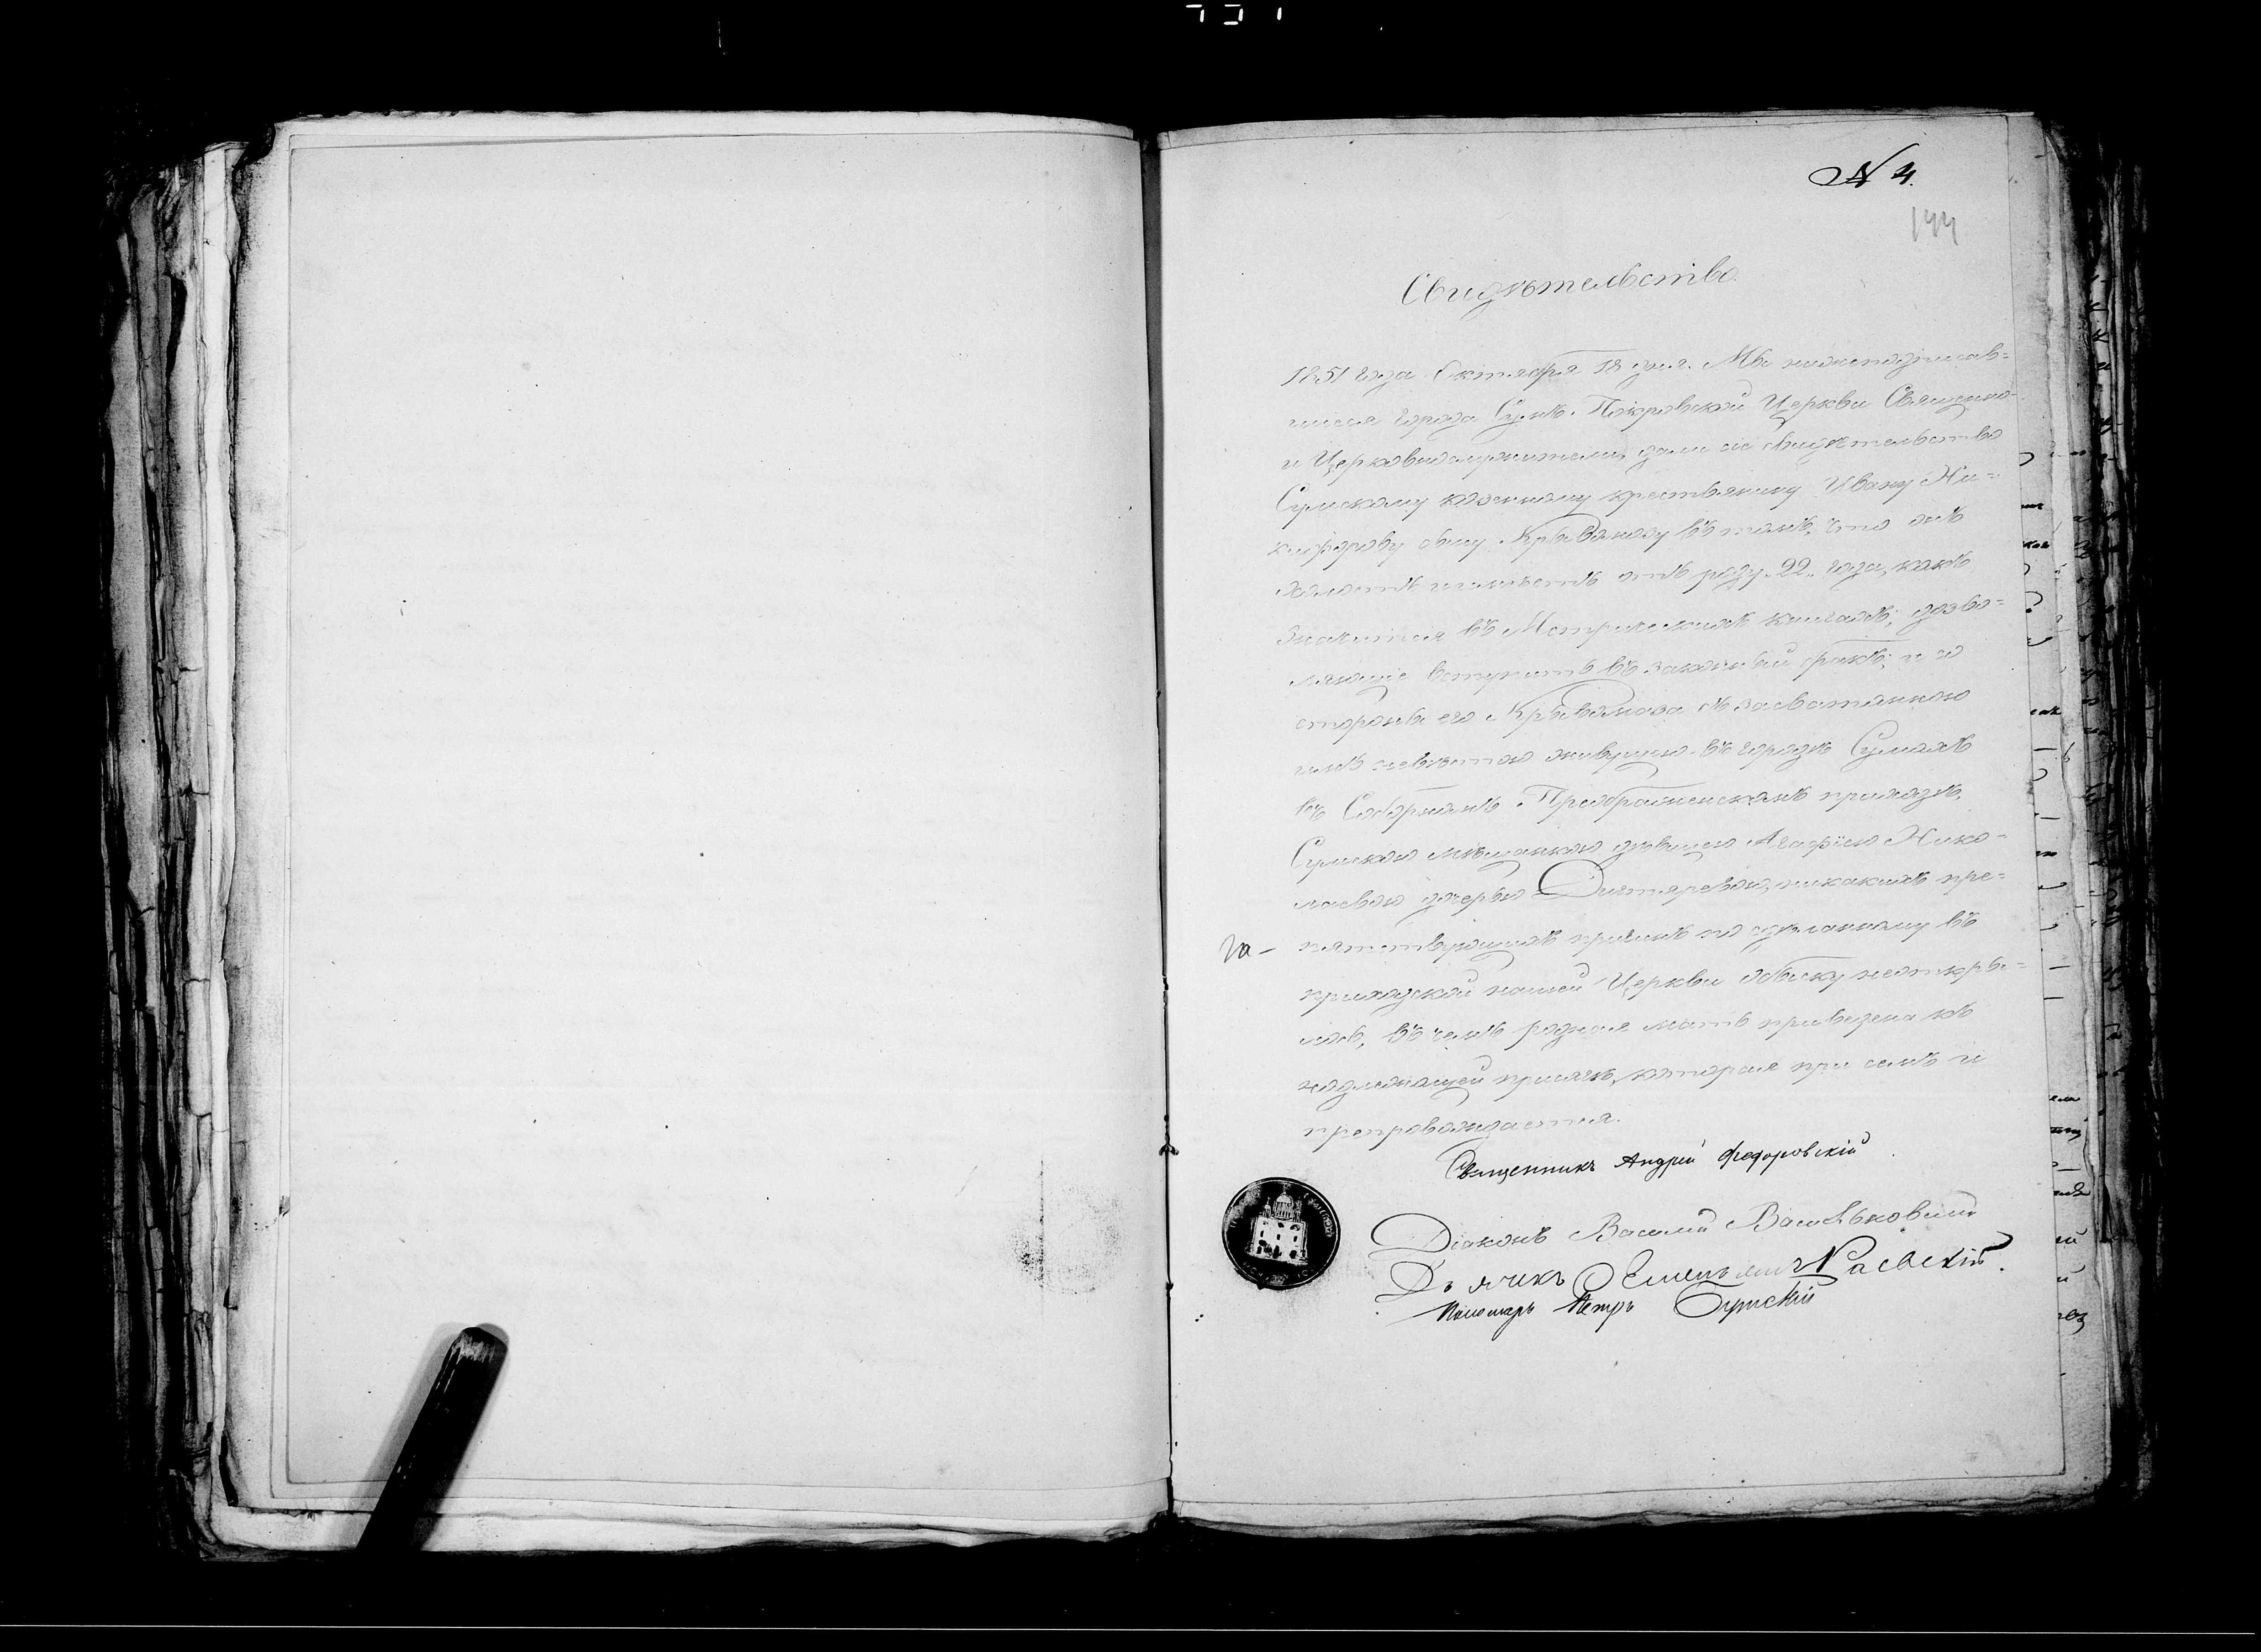 № 4.
144
Свидѣтельство.
1851 года Октября 18 дня. Мы нижеподписав=
шиеся города Сумъ Покровской Церкви Священно-
и Церковнослужители, дали сіе свидѣтельство
Сумскому казенному крестьянину Ивану Ни=
кифорову сыну Крывоносу въ томъ, что онъ
холостъ и имѣетъ отъ роду 22 года, какъ
значится въ Метрическихъ книгахъ; дозво=
ляющіе вступить въ законный бракъ; и со
стороны его Крывоноса съ засватанною
имъ невѣстою живущею въ городѣ Сумахъ
въ Соборномъ Преображенскомъ приходѣ,
Сумскою мѣщанкою дѣвицею Агафіею Нико=
лаевою дочерью Дихтяревою, никакихъ пре=
пятствующихъ причинъ по сдѣланному въ
приходской нашей Церкви обыску неоткры=
лось, въ чемъ родная мать приведена къ
надлежащей присягѣ, которая при семъ и
препровождается.
Священникъ Андрей Федоровскій
Діаконъ Василий Васильковский
Дьячикъ Емельян Раевскій.
Пономарь Петръ